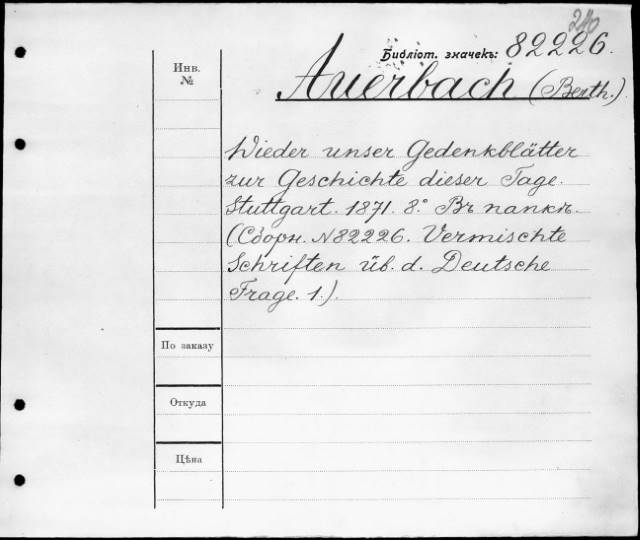 240
Библіот. значекъ: 82226.
Инв.
№
Auerbach (Berth.)
Wieder unser Gedenkblätter
zur Geschichte dieser Tage.
Stuttgart. 1871. 8.° Въ папкѣ.
(Сборн. №82226. Vermischte
Schriften üb. d. Deutsche
Frage. 1.).
По заказу
Откуда
Цѣна